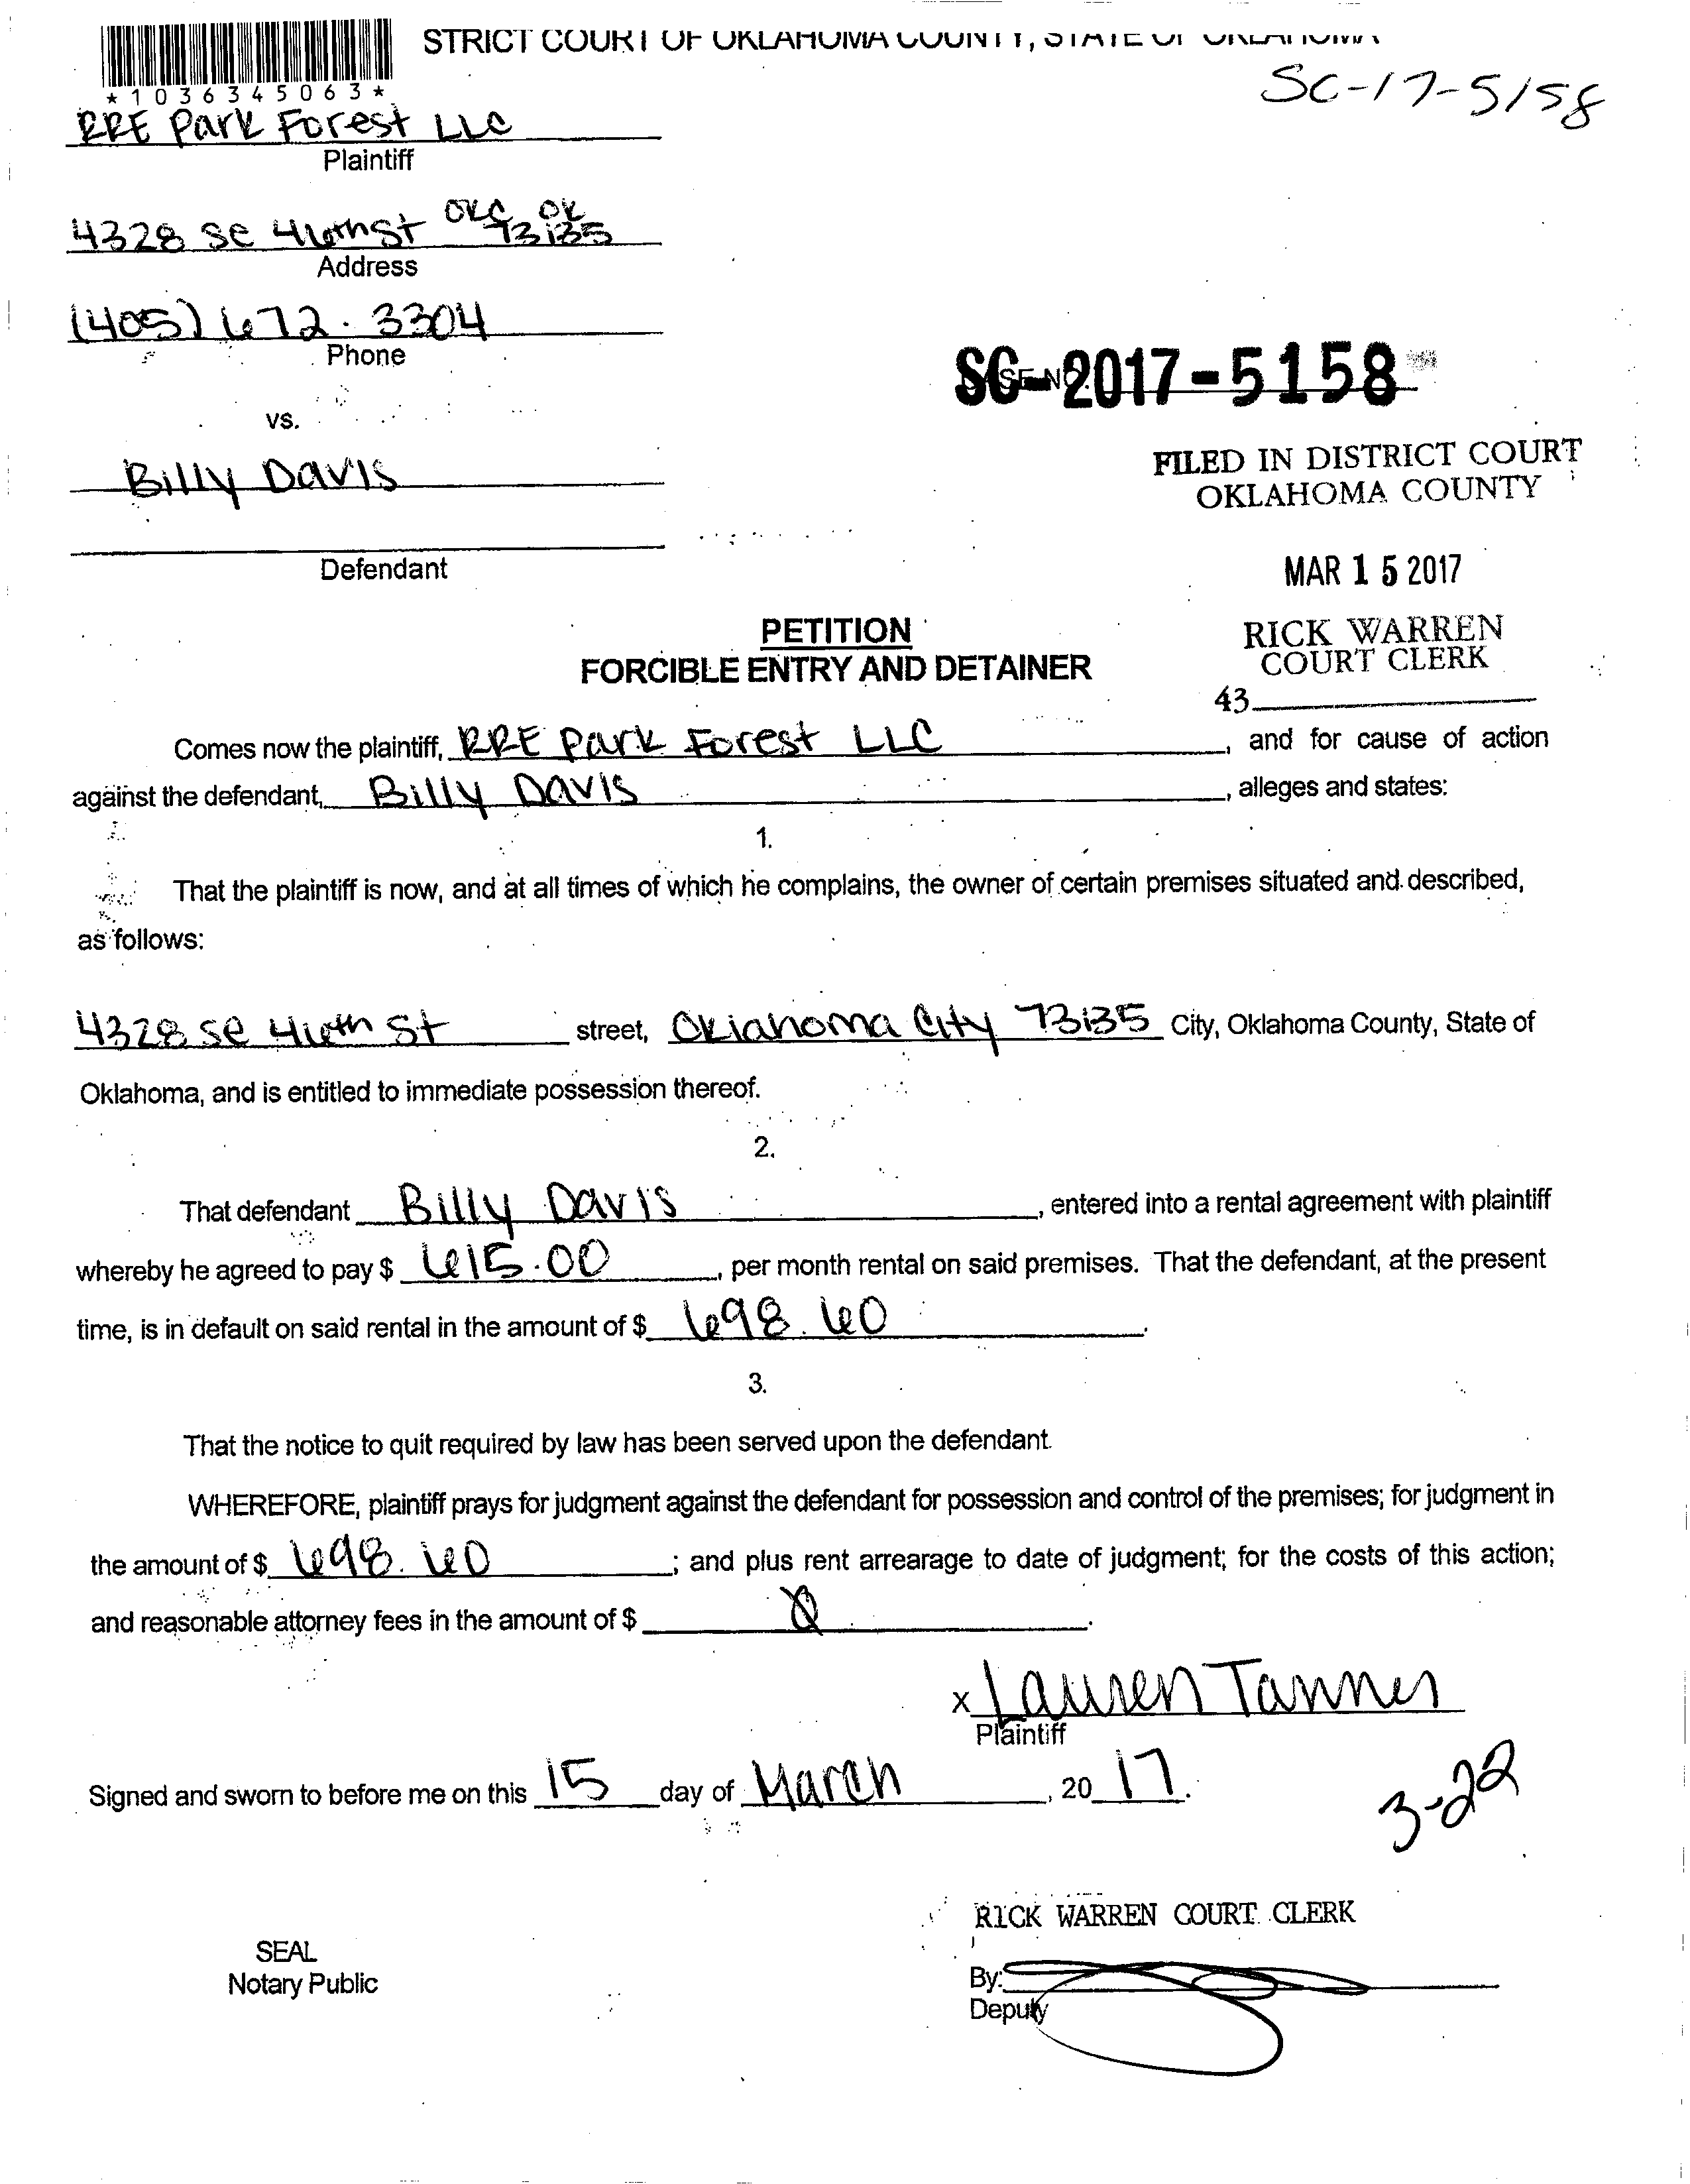 STRICT COURT OF OKLAHOMA COUNTY, STATE OF OKLAHOMA
*1036345063*
SC-17-5158
RRE Park Forest LLC
Plaintiff
4328 SE 46th St OKC OK 73135
Address
(405) 672-3304
Phone
SC-2017-5158
vs.
Billy Davis
FILED IN DISTRICT COURT
OKLAHOMA COUNTY
Defendant
MAR 15 2017
PETITION
FORCIBLE ENTRY AND DETAINER
RICK WARREN
COURT CLERK
43
Comes now the plaintiff, RRE Park Forest LLC, and for cause of action
against the defendant, Billy Davis, alleges and states:
1.
That the plaintiff is now, and at all times of which he complains, the owner of certain premises situated and described,
as follows:
4328 SE 46th St street, Oklahoma City 73135 City, Oklahoma County, State of
Oklahoma, and is entitled to immediate possession thereof.
2.
That defendant Billy Davis, entered into a rental agreement with plaintiff
whereby he agreed to pay $ 615.00, per month rental on said premises. That the defendant, at the present
time, is in default on said rental in the amount of $ 698.60.
3.
That the notice to quit required by law has been served upon the defendant.
WHEREFORE, plaintiff prays for judgment against the defendant for possession and control of the premises; for judgment in
the amount of $ 698.60; and plus rent arrearage to date of judgment; for the costs of this action;
and reasonable attorney fees in the amount of $ .
x Lauren Tanner
Plaintiff
Signed and sworn to before me on this 15 day of March, 20 17.
3-22
RICK WARREN COURT CLERK
SEAL
Notary Public
By:
Deputy